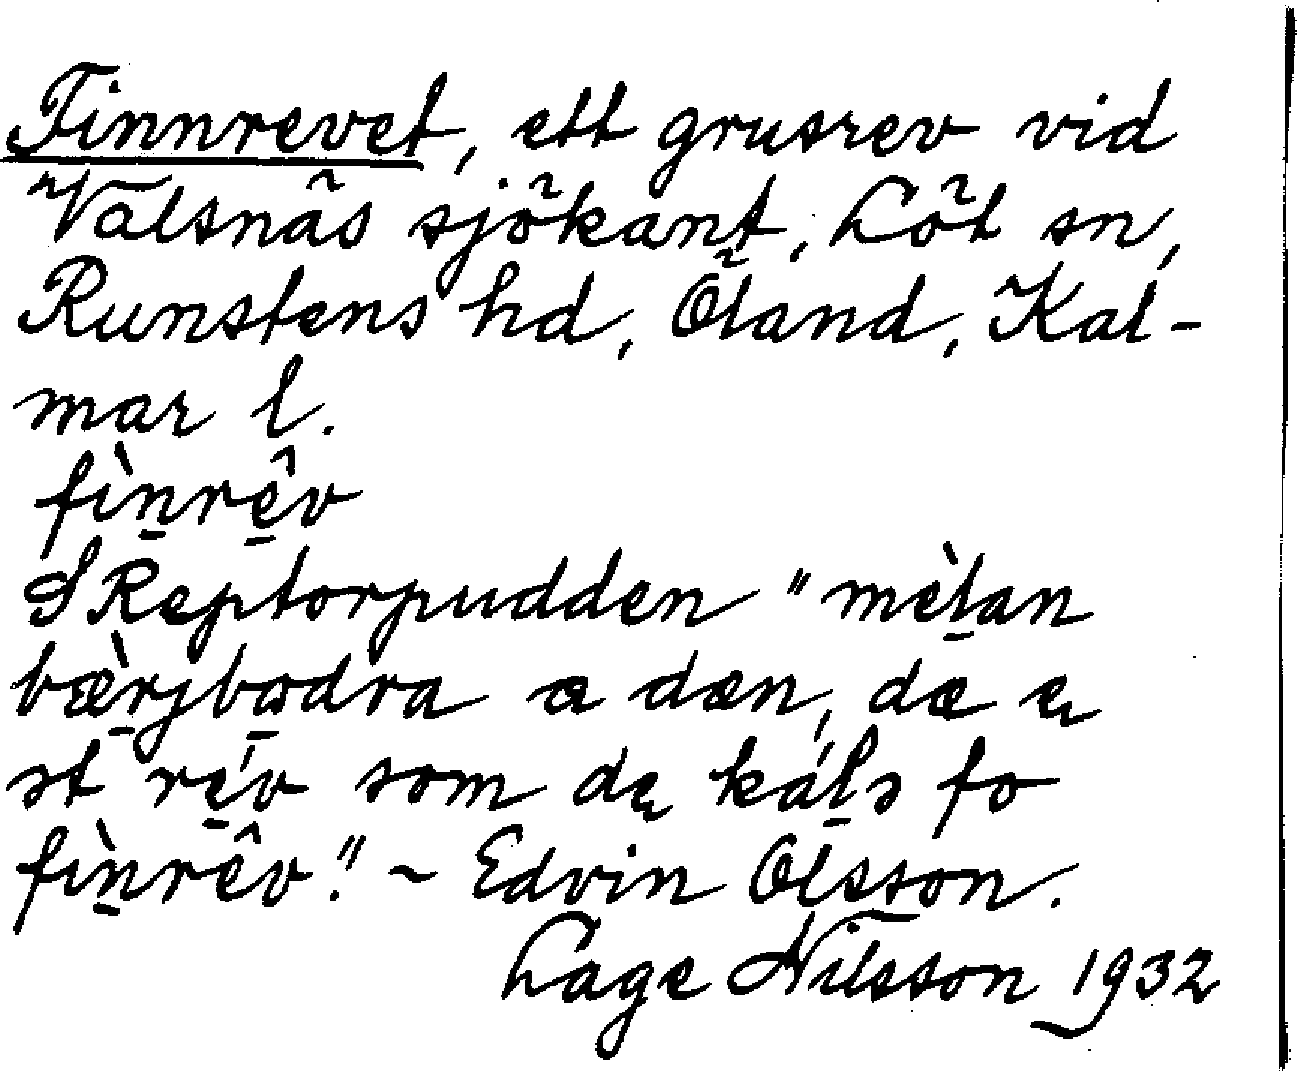 Finnrevet, ett grusrev vid
Valsnäs sjökant, Löt sn,
Runstens hd, Öland, Kal-
mar l.
fìn̠rê̠v
S Reptorpudden "mèl̠an
bæ̀r̠jba̠dra a dæn, dæ ę
ət ré̠v som dę kál̠s fo
fìn̠rêv." ~ Edvin Olsson.
Lage Nilsson 1932